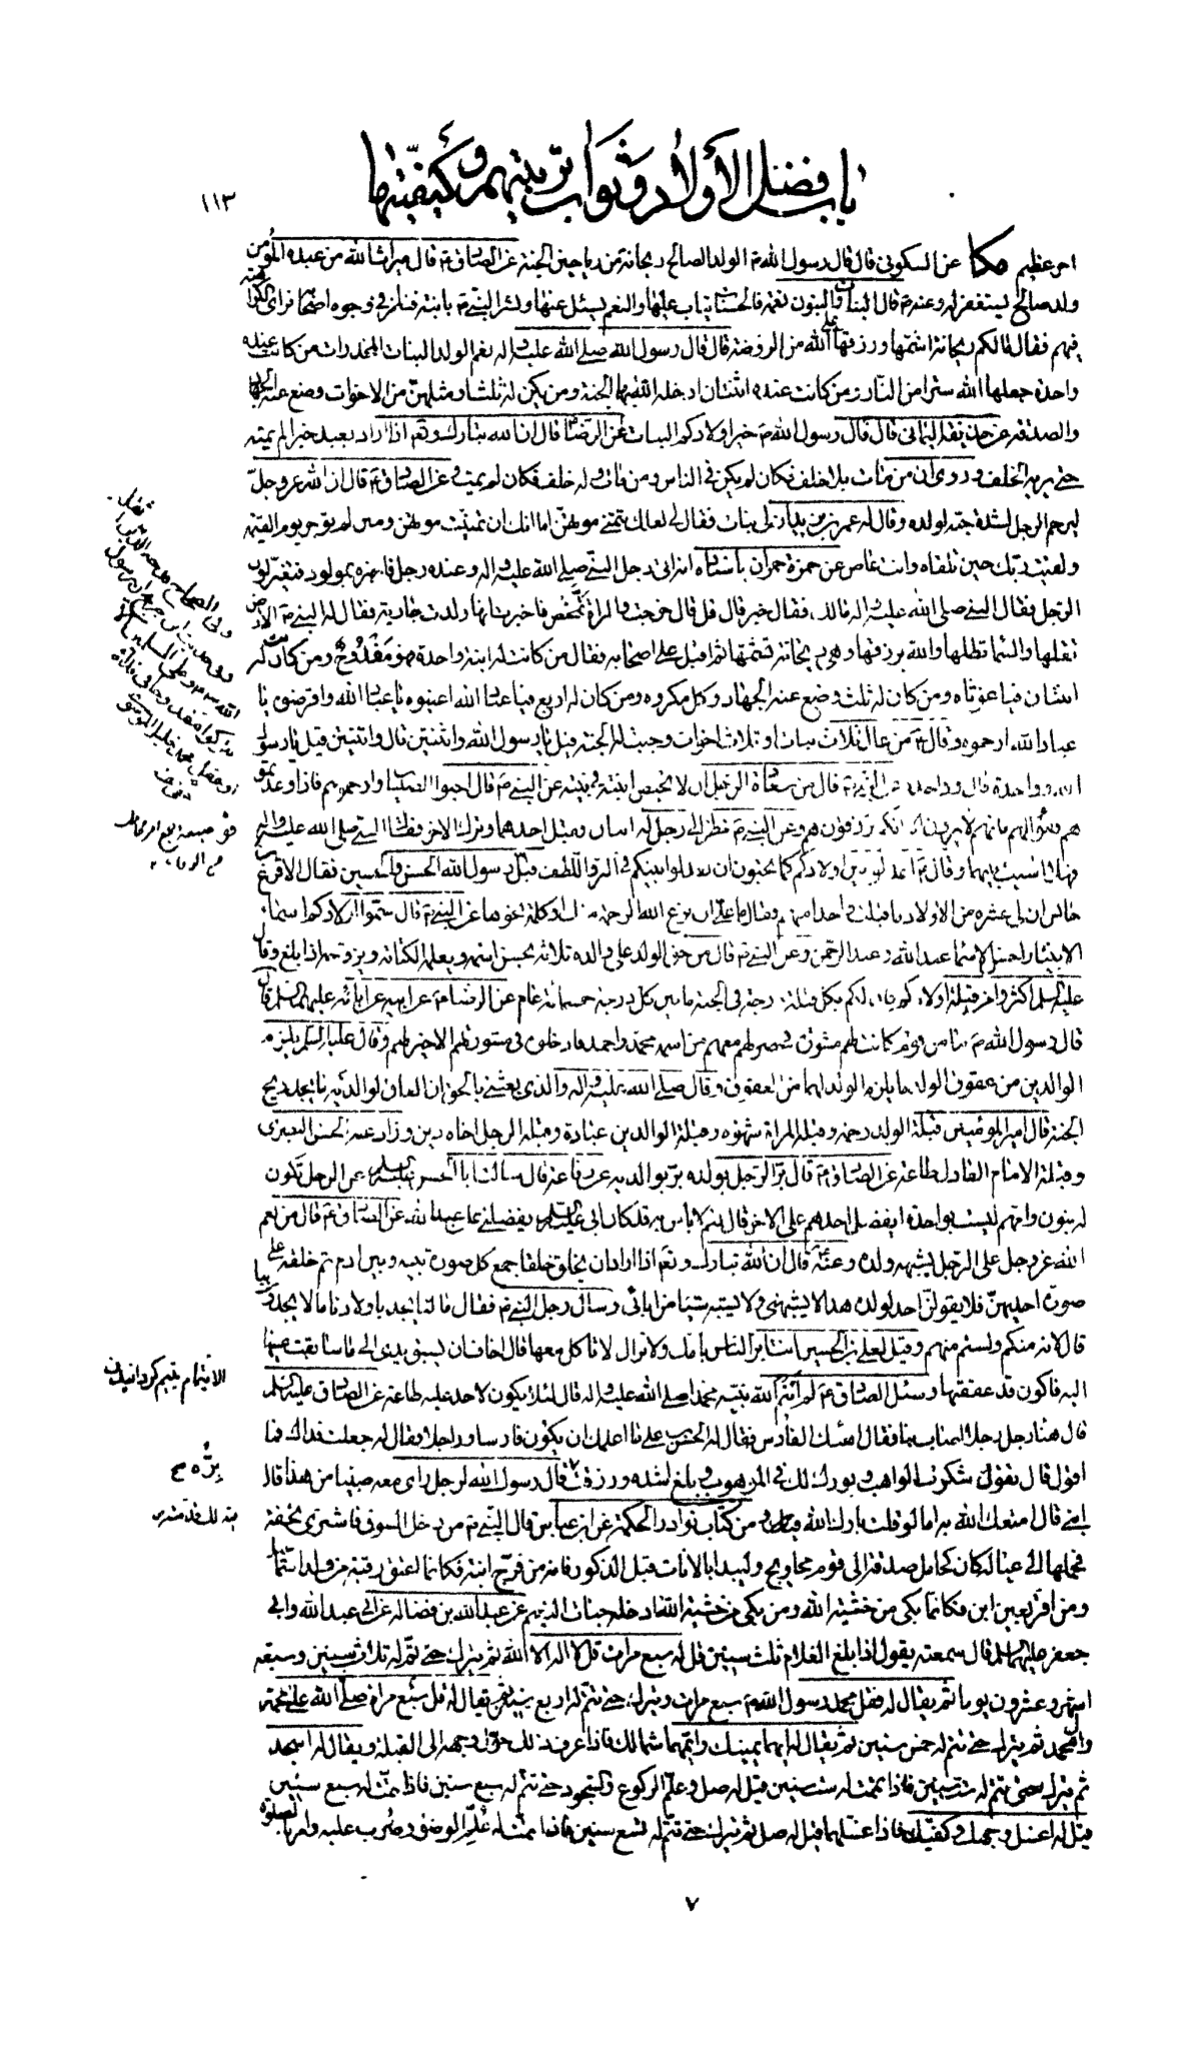 باب فضل الأولاد وثواب تربيتهم وكيفيتها
١١٣
اجر عظيم مكا عن السكوني قال قال رسول الله ص الولد الصالح ريحانة من رياحين الجنة عن الصادق ع قال ميراث الله من عبده المؤمن
ولد صالح يستغفر له وعنه ع قال البنات حسنات والبنون نعمة فالحسنات يثاب عليها والنعم يسئل عنها وبشر النبي ص بابنة فنظر في وجوه اصحابه فراى الكراهة
فيهم فقال ما لكم ريحانة اشمها ورزقها على الله من الروضة قال قال رسول الله صلى الله عليه واله نعم الولد البنات المخدرات من كانت عنده
واحدة جعلها الله سترا من النار ومن كانت عنده اثنتان ادخله الله بهما الجنة ومن يكن له ثلث او مثلهن من الاخوات وضع عنه الجهاد
والصدقة عن حذيفة اليماني قال قال رسول الله ص خير اولادكم البنات عن الرضا ع قال ان الله تبارك وتعالى اذا اراد بعبد خيرا لم يمته
حتى يريه الخلف وروى ان من مات بلا خلف فكان لم يكن في الناس ومن مات وله خلف فكان لم يمت وعن الصادق ع قال ان الله عز وجل
ليرحم الرجل لشدة حبه لولده وقال له عمر بن يزيد ان لي بنات فقال لعلك تتمنى موتهن اما انك ان تمنيت موتهن ومتن لم توجر يوم القيمة
ولقيت ربك حين تلقاه وانت عاص عن حمزة بن حمران باسناده انه اتى رجل النبي صلى الله عليه واله وعنده رجل فاخبره بمولود فتغير لون
الرجل فقال النبي صلى الله عليه واله مالك فقال خير قال قل قال خرجت والمراة تمخض فاخبرت انها ولدت جارية فقال له النبي ص الارض
تقلها والسماء تظلها والله يرزقها وهي ريحانة تشمها ثم اقبل على اصحابه فقال من كانت له ابنة واحدة فهو مفدوح ومن كان له
ابنتان فيا غوثاه ومن كان له ثلث وضع عنه الجهاد وكل مكروه ومن كان له اربع فيا عباد الله اعينوه يا عباد الله اقرضوه يا
عباد الله ارحموه وقال ص من عال ثلاث بنات او ثلاث اخوات وجبت له الجنة فقيل يا رسول الله واثنتين قال واثنتين قيل يا رسول
الله وواحدة قال وواحدة قال من سعادة الرجل ان لا تحيض ابنته في بيته عن النبي ص قال احبوا الصبيان وارحموهم فاذا وعدتموهم
ففوا لهم فانهم لا يرون الا انكم ترزقونهم وعن النبي ص نظر الى رجل له ابنان فقبل احدهما وترك الاخر فقال النبي صلى الله عليه واله
فهلا واسيت بينهما وقال ع اعدلوا بين اولادكم كما تحبون ان يعدلوا بينكم في البر واللطف وقبل رسول الله الحسن والحسين فقال الاقرع بن
حابس ان لي عشرة من الاولاد ما قبلت واحدا منهم فقال ما علي ان نزع الله الرحمة منك او كلمة نحوها عن النبي ص قال سموا اولادكم اسماء
الانبياء واحسن الاسماء عبد الله وعبد الرحمن وعن النبي ص قال من حق الولد على والده ثلاثة يحسن اسمه ويعلمه الكتابة ويزوجه اذا بلغ وقال
عليه السلم اكثروا من قبلة اولادكم فان لكم بكل قبلة درجة في الجنة ما بين كل درجة خمسمائة عام عن الرضا ع عن ابيه عن ابائه عليهم السلم قال
قال رسول الله ص ما من قوم كانت لهم مشورة فحضر لهم معهم من اسمه محمد واحمد فادخلوه في مشورتهم الا خير لهم وقال عليه السلم يلزم
الوالدين من عقوق الولد ما يلزم الولد لهما من العقوق وقال صلى الله عليه واله والذي بعثني بالحق ان العاق لوالديه ما يجد ريح
الجنة قال امير المؤمنين قبلة الولد رحمة وقبلة المراة شهوة وقبلة الوالدين عبادة وقبلة الرجل اخاه دين وزاد عنه الحسن البصري
وقبلة الامام العادل طاعة عن الصادق ع قال بر الرجل بولده بره بوالديه عن رفاعة قال سالت ابا الحسن عليه السلم عن الرجل تكون
له بنون وامهم ليست بواحدة ايفضل احدهم على الاخر قال نعم لا باس به قد كان ابي عليه السلم يفضلني على عبد الله عن الصادق ع قال من نعم
الله عز وجل على الرجل ليشبهه ولده وعنه ع قال ان الله تبارك وتعم اذا اراد ان يخلق خلقا جمع كل صورة بينه وبين ادم ثم خلقه على
صورة احديهن فلا يقولن احد لولده هذا لا يشبهني ولا يشبه شيئا من ابائي وسال رجل النبي ص فقال ما لنا نجد باولادنا ما لا يجدون بنا
قال لانهم منكم ولستم منهم وقيل لعلي بن الحسين انت ابر الناس بامك ولا نراك لا تاكل معها قال اخاف ان يسبق يدي الى ما سبقت عينها
اليه فاكون قد عققتها وسئل الصادق ع لم ايتم الله نبيه محمد صلى الله عليه واله قال لئلا يكون لاحد عليه طاعة عن الصادق عليه السلم
قال هنا رجل رجلا اصاب ابنا فقال اهنئك الفارس فقال له الحسن بن علي ما اعلمك ان يكون فارسا او راجلا فقال له جعلت فداك فما
اقول قال تقول شكرت الواهب وبورك لك في الموهوب وبلغ اشده ورزقت بره قال رسول الله لرجل راى معه صبيا من هذا قال
ابني قال امتعك الله به اما لو قلت بارك الله فيه لك ومن كتاب نوادر الحكمة عن ابن عباس قال قال النبي ص من دخل السوق فاشترى تحفة
فحملها الى عياله كان كحامل صدقة الى قوم محاويج وليبدا بالاناث قبل الذكور فانه من فرح ابنة فكانما اعتق رقبة من ولد اسمعيل
ومن اقر بعين ابن فكانما بكى من خشية الله ومن بكى من خشية الله ادخله جنات النعيم عن عبد الله بن فضالة عن ابي عبد الله وابي
جعفر عليهما السلم قال سمعته يقول اذا بلغ الغلام ثلث سنين قل له سبع مرات قل لا اله الا الله ثم يترك حتى تتم له ثلاث سنين وسبعة
اشهر وعشرون يوما ثم يقال له فقل محمد رسول الله ص سبع مرات ويترك حتى تتم له اربع سنين ثم يقال له قل سبع مرات صلى الله على محمد
وال محمد ثم يترك حتى تتم له خمس سنين ثم يقال له ايهما يمينك وايهما شمالك فاذا عرف ذلك حول وجهه الى القبلة ويقال له اسجد
ثم يترك حتى تتم له ست سنين فاذا تمت له ست سنين قيل له صل وعلم الركوع والسجود حتى تتم له سبع سنين فاذا تمت له سبع سنين
قيل له اغسل وجهك وكفيك فاذا غسلهما قيل له صل ثم يترك حتى تتم له تسع سنين فاذا تمت له علم الوضوء وضرب عليه وامر بالصلوة
بره ع
٧